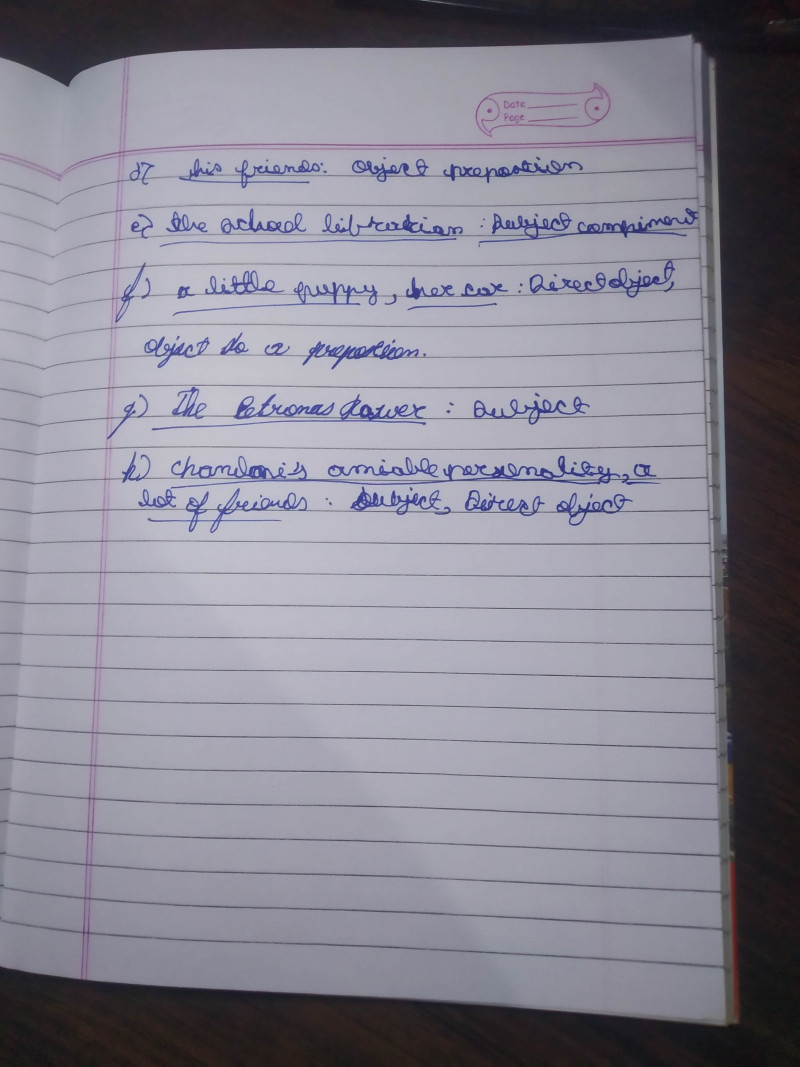 Date
Page
d) his friends: object preposition
e) the school librarian : subject compliment
f) a little puppy, her car : Direct object,
object to a preposition.
g) The Petronas Tower : subject
h) Chandani's amiable personality, a
lot of friends : Subject, Direct object